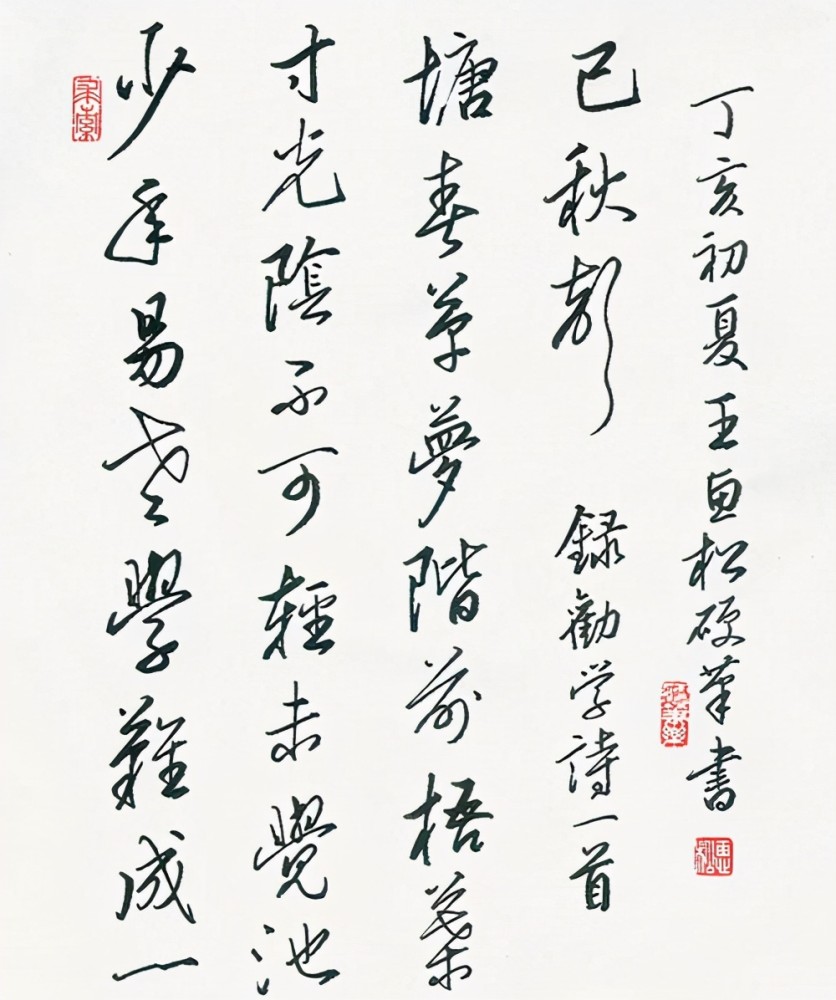 少年易老學難成一
寸光陰不可輕未覺池
塘春草夢階前梧葉
已秋聲 録勸学詩一首
丁亥初夏王惠松硬筆書